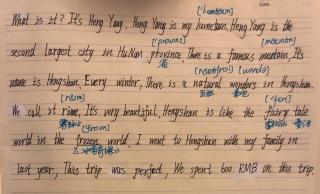 ['həʊmtaʊn]
What is it? It's Heng Yang. Heng Yang is my hometown. Heng Yang is the
['prɒvɪns] ['maʊntɪn]
second largest city in HuNan province. There is a famous mountain. Its
省
name is Hengshan. Every winter, There is a natural wonders in Hengshan.
自然 奇观
[raɪm]
We call it rime, It's very beautiful. Hengshan is like the fairy tale
童话
world in the frozen world. I went to Hengshan with my family in
last year, This trip was perfect. We spent 500 RMB on this trip.